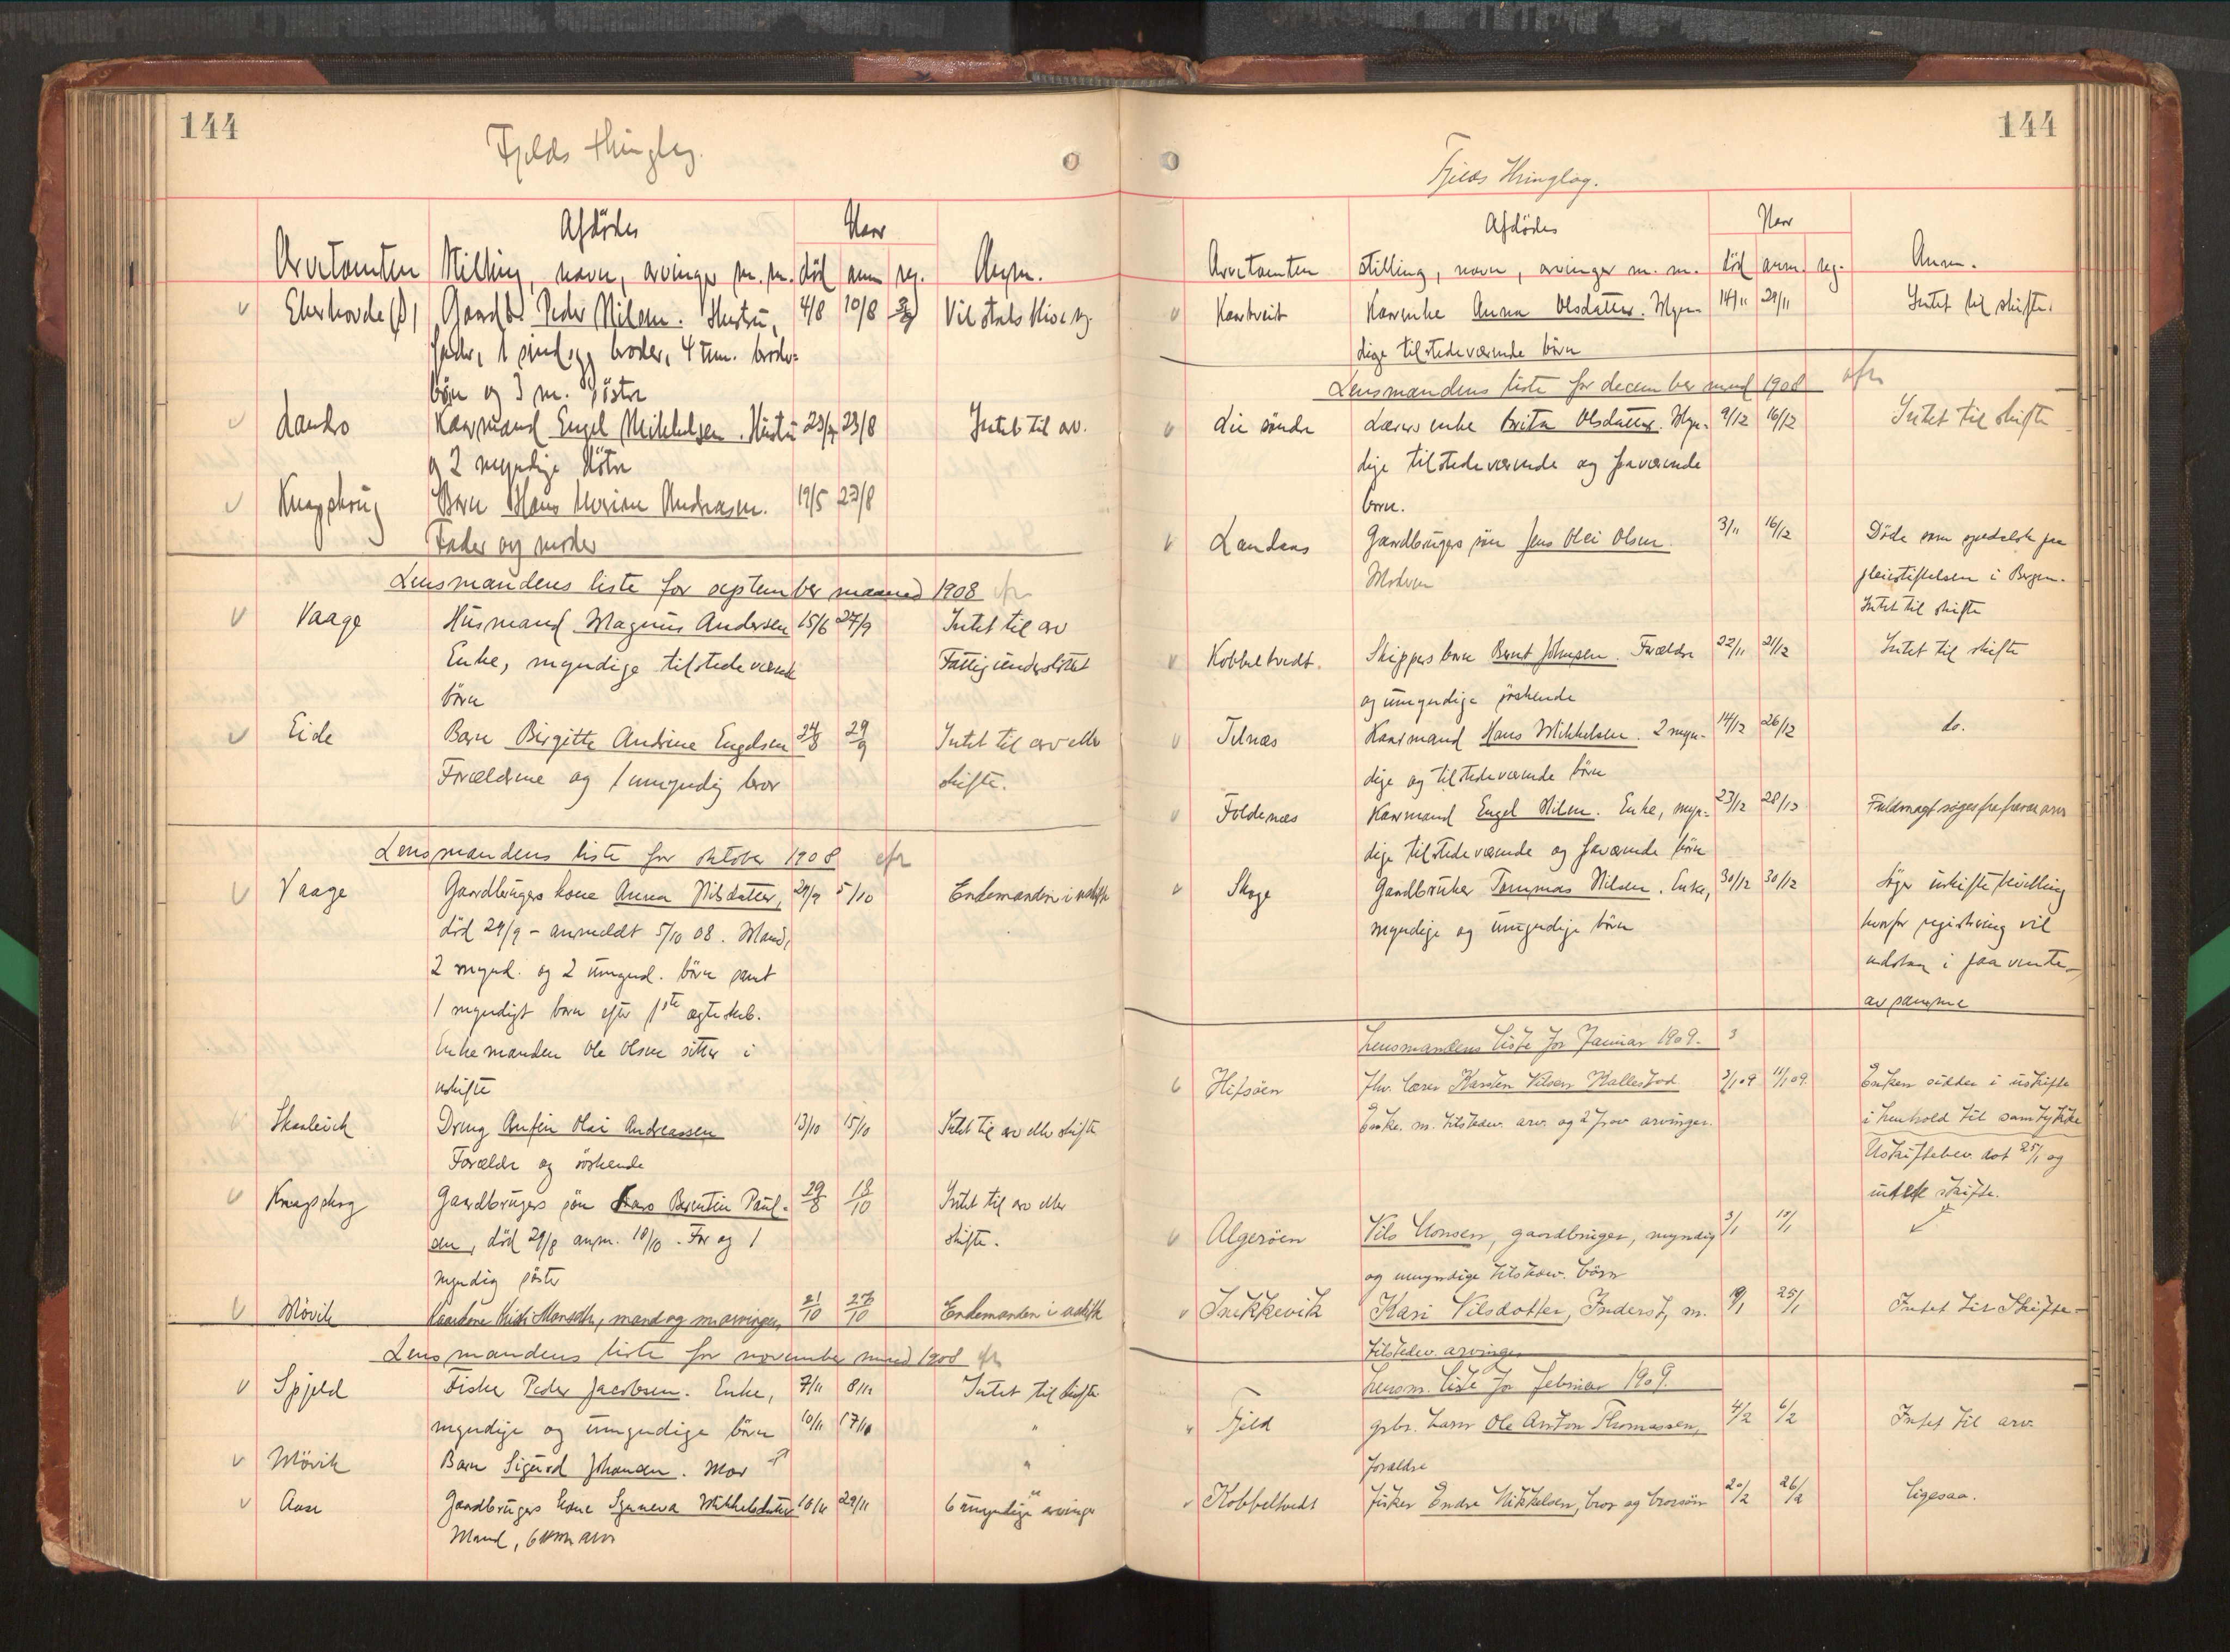 144
Fjelds thinglag.
Afdödes
Naar
Arvetomten Stilling, navn, arvinger m.m. död anm reg. Anm.
Gaardb. Peder Nilsen. Hustru, 4/8 10/8
fader, 1 sindssyg broder, 4 um. broder-
börn og 3 m. söstre
Landro Kaarmand Engel Mikkelsen. Hustru 23/8 Intet til arv.
og 2 myndige döttre
Knapskoug Barn Hans Andreassen. 19/5 23/8
Fader og moder
Lensmandens liste for september maaned 1908 efr
Vaage Husmand Magnus Andersen 15/6 27/9 Intet til arv
Enke, myndige tilstedeværende Fattigunderstöttet
börn
Eide Barn Birgitte Andrine Engelsen 24/8 29/9 Intet til arv eller
Forældrene og 1 umyndig bror skifte.
Lensmandens liste for oktober 1908 efr
Vaage Gaardbrugers kone Anna Nilsdatter, 29/9 5/10 Enkemanden i uskifte
död 29/9 - anmeldt 5/10 08. Mand,
2 mynd. og 2 umynd. börn samt
1 myndigt barn efter 1ste ægteskab.
Enkemanden Ole Olsen sitter i
uskifte
Skaalevick Dreng Anfin Olai Andreassen 13/10 15/10 Intet til arv eller skifte
Forældre og söskende
Knapskog Gaardbrugers sön Lars Berentin Paul- 29/8 18/10 Intet til arv eller
sen, död 29/8 anm. 10/10. Far og 1 skifte.
myndig söster
Mövik Kaarkone Monsdtr, mand og m. arvinger. 21/10 27/10 Enkemanden i uskifte
Lensmandens liste for november mnd 1908 efr
Spjeld Fisker Peder Jacobsen. Enke, 7/11 8/11 Intet til skifte
myndige og umyndige börn 10/11 17/11 "
Mövik Barn Sigurd Johansen. Mor "
Aase Gaardbrugers kone Synneva Mikkelsdatter 10/11 29/11 6 umyndige arvinger
Mand, 6 um arv
144
Fjelds thinglag.
Afdödes
Naar
Arvetomten stilling, navn, arvinger m. m. död anm. reg. Anm.
Kaartveit Kaarenke Anna Olsdatter. Myn- 14/11 29/11 Intet til skifte.
dige tilstedeværende börn
Lensmandens liste for december mnd 1908 efr
Lie söndre Lærers enke Brita Olsdatter. Myn- 9/12 16/12 Intet til skifte
dige tilstedeværende og fraværende
börn.
Landaas Gaardbrugers sön Jens Olai Olsen. 3/11 16/12 Döde som spedalsk paa
Moderen pleiestiftelsen i Bergen.
Intet til skifte
Kobbeltvedt. Skippers barn Bernt Johnsen. Forældre 22/11 21/12 Intet til skifte
og umyndige söskende
Telnæs Kaarmand Hans Mikkelsen. 2 myn- 14/12 26/12 do.
dige og tilstedeværende börn
Foldenæs Kaarmand Engel Nilsen. Enke, myn- 23/12 28/12 Fuldmagt söges fra fravær. arv.
dige tilstedeværende og fraværende börn
Skoge Gaardbruker Tommas Nilsen. Enke, 30/12 30/12 söger uskiftebevilling
myndige og umyndige börn hvorfor registrering vil
udstaa i paavente
av samme
Lensmandens liste for Januar 1909. 3
Hitsöen fhv. lærer Karsten Nilsen Hallestad 3/1 09 11/1 09. Enken sidder i uskifte
Enke. m. tilstedev. arv. og 2 frav arvinger. i henhold til samtykke
Uskiftebev. dat 25/1 og
intet skifte.
Algeröen Nils Monsen, gaardbruger, myndig 3/1 18/1
og umyndige tilstedev. börn
Snekkevik Kari Nilsdotter, Inderst, m. 19/1 25/1 Intet til Skifte
tilstedev. arvinger
Lensm. liste for februar 1909.
Fjeld gbr. barn Ole Anton Thomassen, 4/2 6/2 Intet til arv.
forældre
Kobbeltvedt fisker Endre Mikkelsen, bror og brorsön 20/2 26/2 Ligesaa.